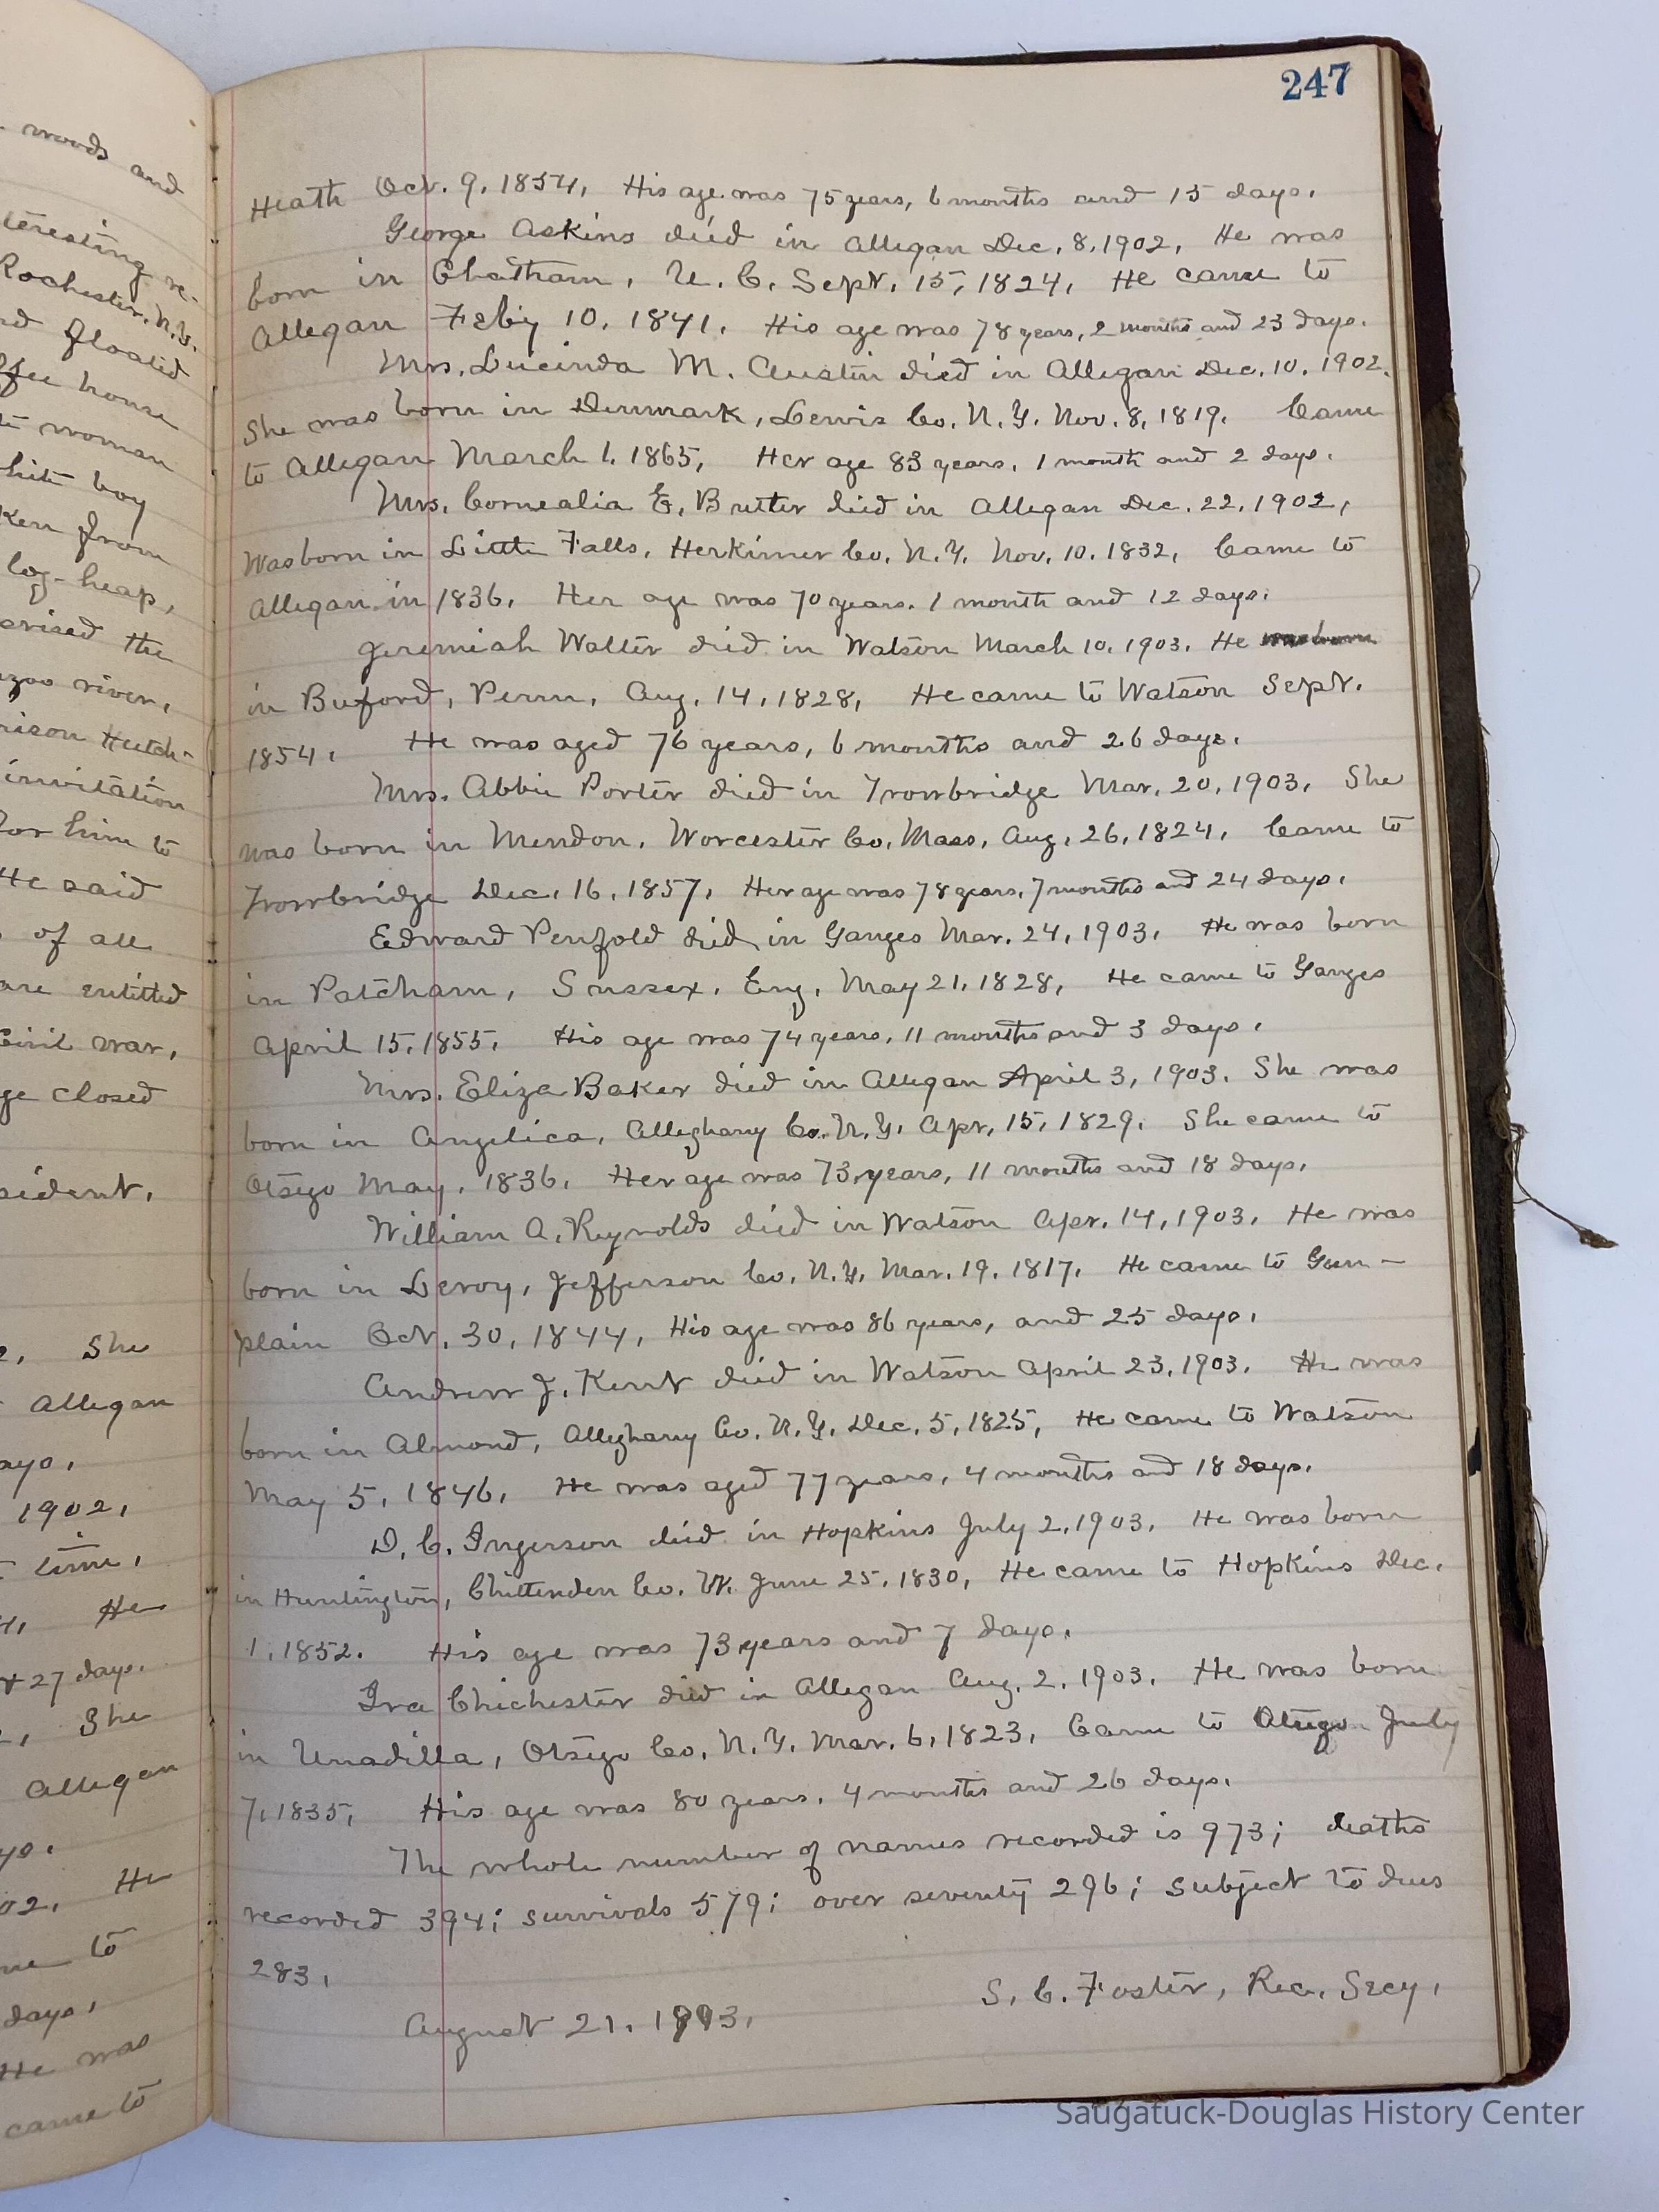 247
woods and
teresting re-
Rochester, N.Y.
floated
house
woman
boy
from
log-heap,
the
river,
Hutch-
invitation
for him to
He said
of all
are entitled
Civil war,
closed
She
Allegan
1902,
time,
He
27 days.
She
Allegan
He
to
days,
He was
came to
Heath Oct. 9, 1854, His age was 75 years, 6 months and 15 days.
George Askins died in Allegan Dec. 8, 1902, He was
born in Chatham, U. C. Sept. 15, 1824, He came to
Allegan Feby 10, 1841. His age was 78 years, 2 months and 23 days.
Mrs. Lucinda M. Austin died in Allegan Dec. 10, 1902.
She was born in Denmark, Lewis Co. N.Y. Nov. 8, 1819. Came
to Allegan March 1, 1865, Her age 83 years, 1 month and 2 days.
Mrs. Cornealia E. Butler died in Allegan Dec. 22, 1902,
Was born in Little Falls, Herkimer Co. N.Y. Nov. 10, 1832, Came to
Allegan in 1836. Her age was 70 years, 1 month and 12 days.
Jeremiah Walter died in Watson March 10, 1903. He was born
in Buford, Penn, Aug. 14, 1828, He came to Watson Sept.
1854. He was aged 76 years, 6 months and 26 days.
Mrs. Abbie Porter died in Trowbridge Mar. 20, 1903. She
was born in Mendon, Worcester Co. Mass, Aug. 26, 1824, Came to
Trowbridge Dec. 16, 1857, Her age was 78 years, 7 months and 24 days.
Edward Penfold died in Ganges Mar. 24, 1903. He was born
in Patcham, Sussex, Eng, May 21, 1828, He came to Ganges
April 15, 1855. His age was 74 years, 11 months and 3 days.
Mrs. Eliza Baker died in Allegan April 3, 1903. She was
born in Angelica, Alleghany Co. N.Y. Apr. 15, 1829. She came to
Otsego May, 1836. Her age was 73 years, 11 months and 18 days.
William A. Reynolds died in Watson Apr. 14, 1903. He was
born in Leroy, Jefferson Co. N.Y. Mar. 19, 1817, He came to Gun-
plain Oct. 30, 1844, His age was 86 years, and 25 days.
Andrew J. Kent died in Watson April 23, 1903. He was
born in Almond, Alleghany Co. N.Y. Dec. 5, 1825, He came to Watson
May 5, 1846, He was aged 77 years, 4 months and 18 days.
D. C. Ingerson died in Hopkins July 2, 1903. He was born
in Huntington, Chittenden Co. Vt. June 25, 1830, He came to Hopkins Dec.
1, 1852. His age was 73 years and 7 days.
Ira Chichester died in Allegan Aug. 2, 1903. He was born
in Unadilla, Otsego Co. N.Y. Mar. 6, 1823, Came to Otsego July
7, 1835, His age was 80 years, 4 months and 26 days.
The whole number of names recorded is 973; deaths
recorded 394; survivals 579; over seventy 296; subject to dues
283,
S. C. Foster, Rec. Secy.
August 21, 1903.
Saugatuck-Douglas History Center